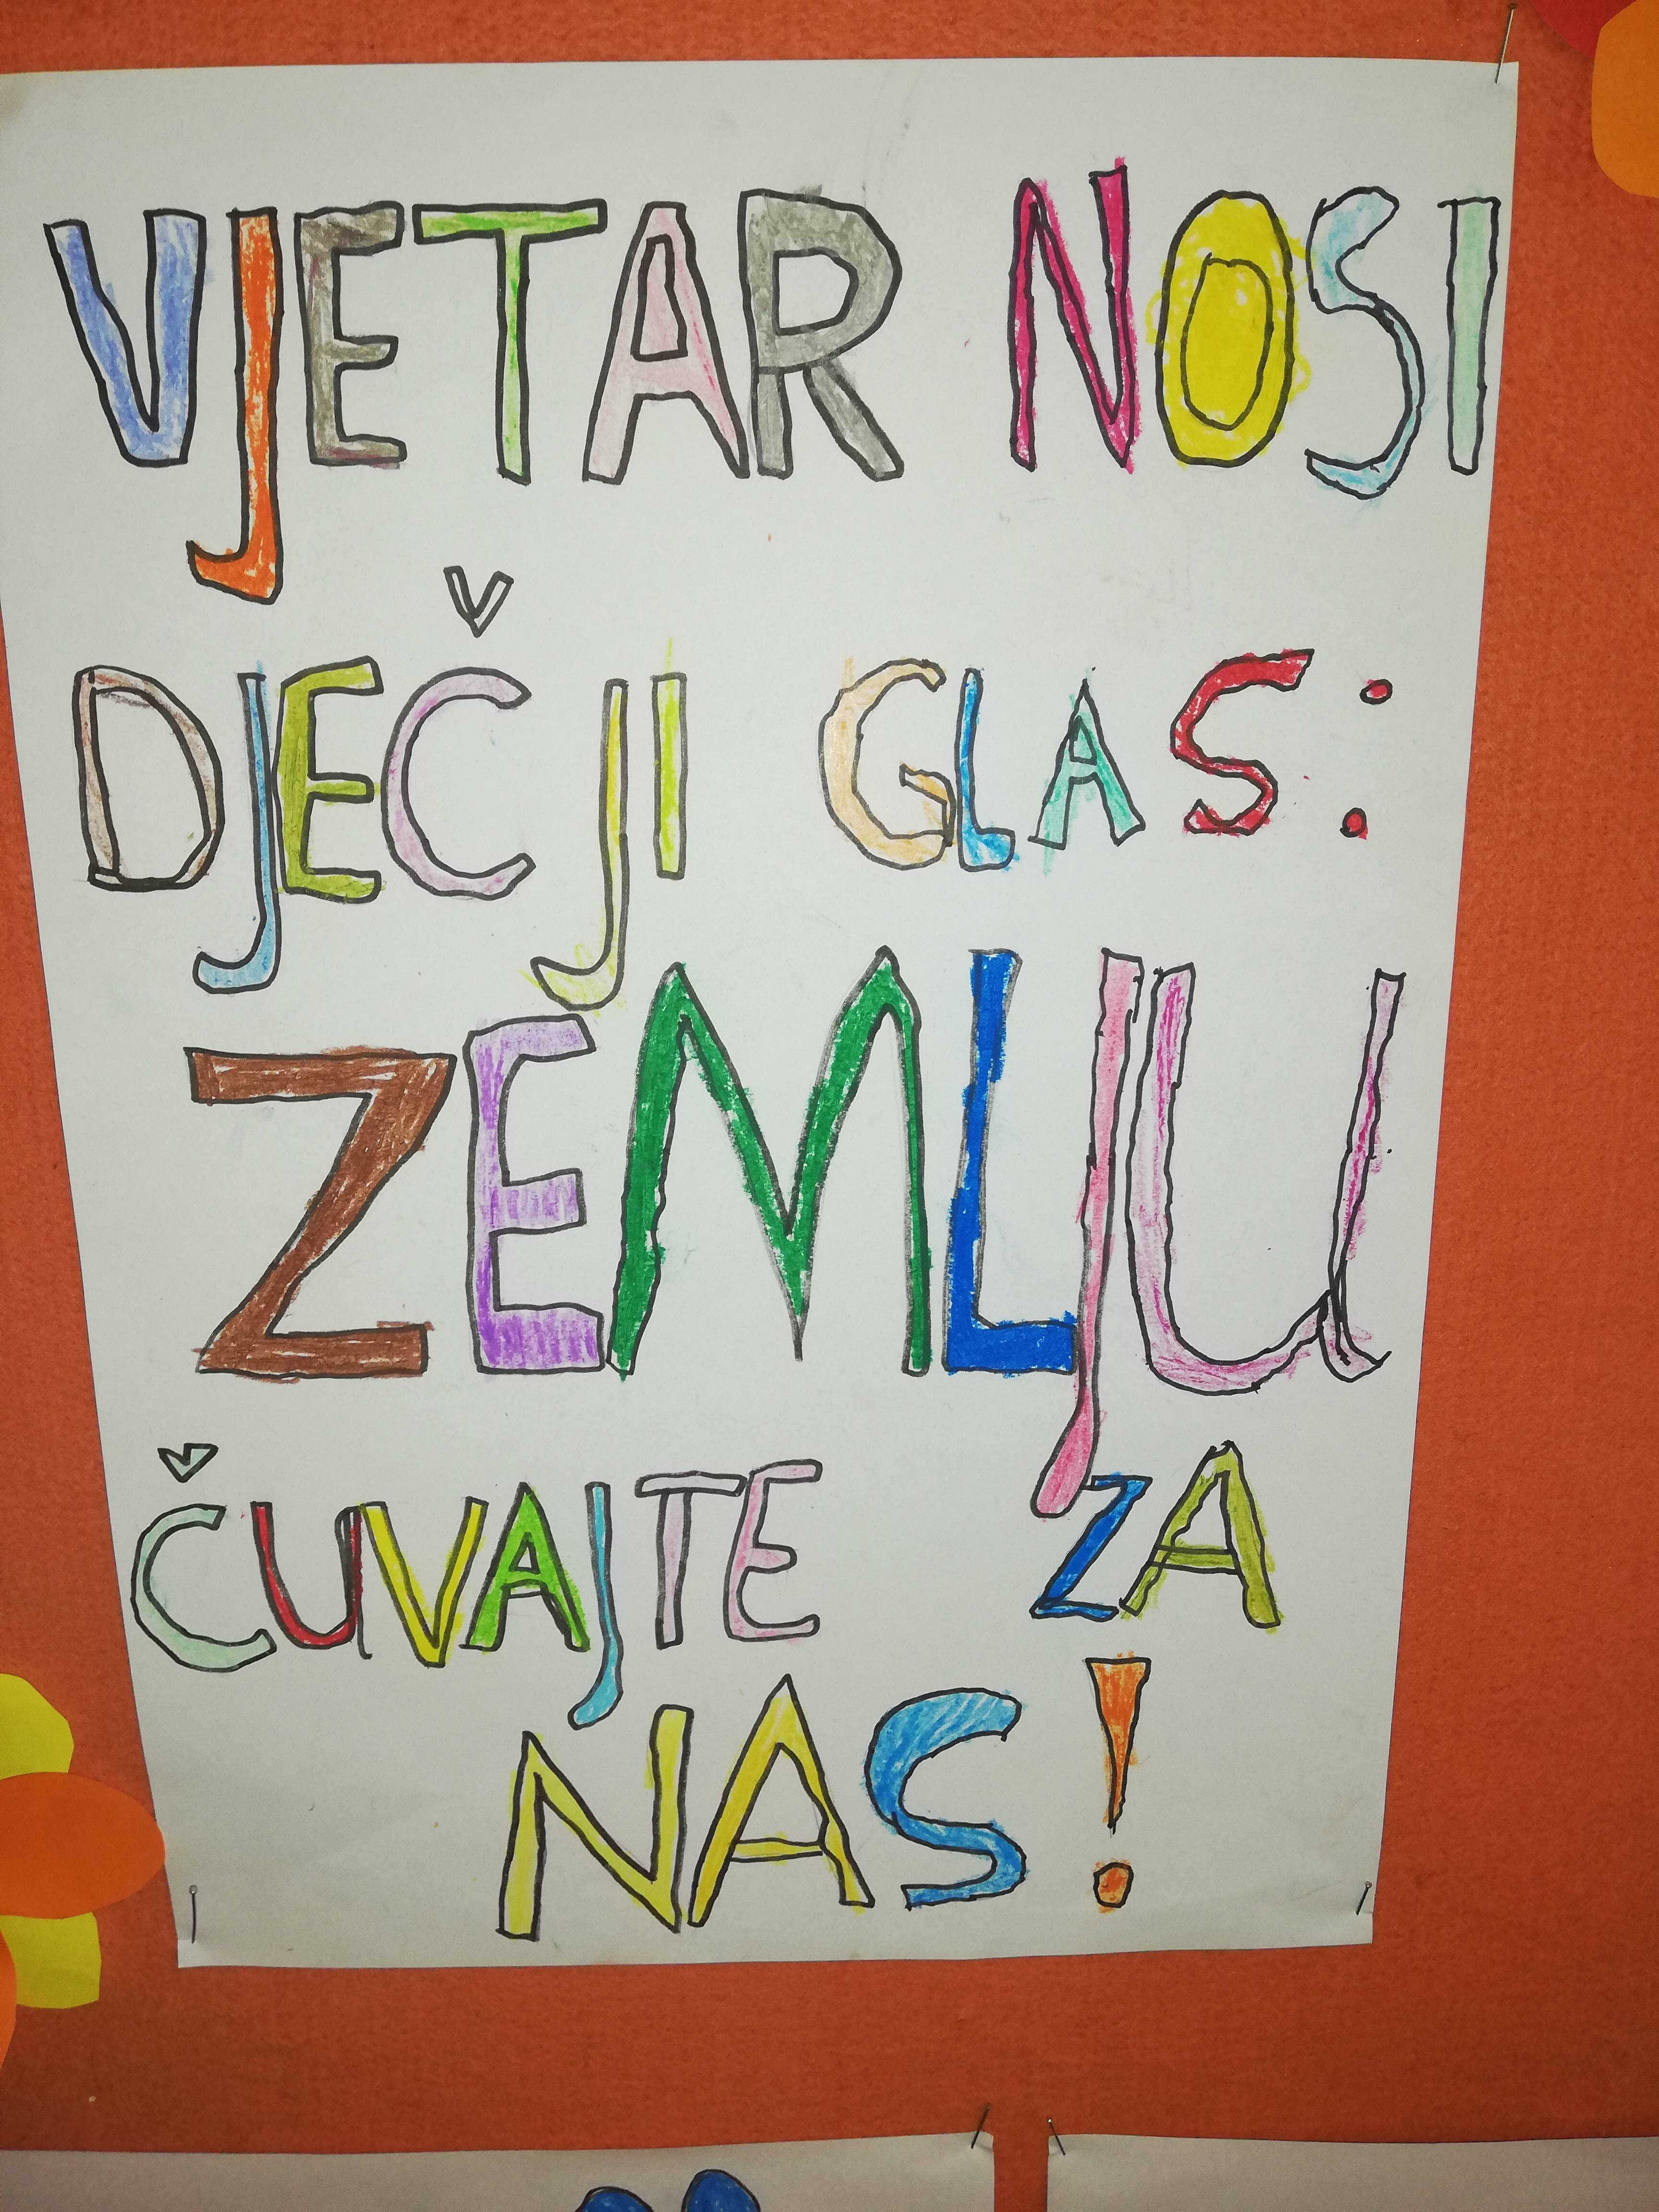 VJETAR NOSI
DJEČJI GLAS:
ZEMLJU
ČUVAJTE ZA
NAS!